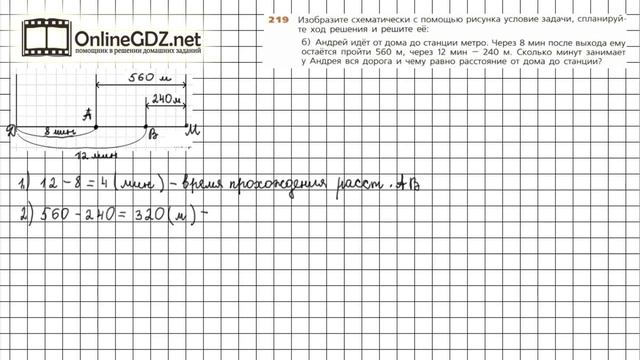 OnlineGDZ.net
помощник в решении домашних заданий
219 Изобразите схематически с помощью рисунка условие задачи, спланируй-
те ход решения и решите её:
б) Андрей идёт от дома до станции метро. Через 8 мин после выхода ему
остаётся пройти 560 м, через 12 мин — 240 м. Сколько минут занимает
у Андрея вся дорога и чему равно расстояние от дома до станции?
560 м
240 м
Д 8 мин А В М
12 мин
1) 12 - 8 = 4 (мин) - время прохождения расст. АВ
2) 560 - 240 = 320 (м) -